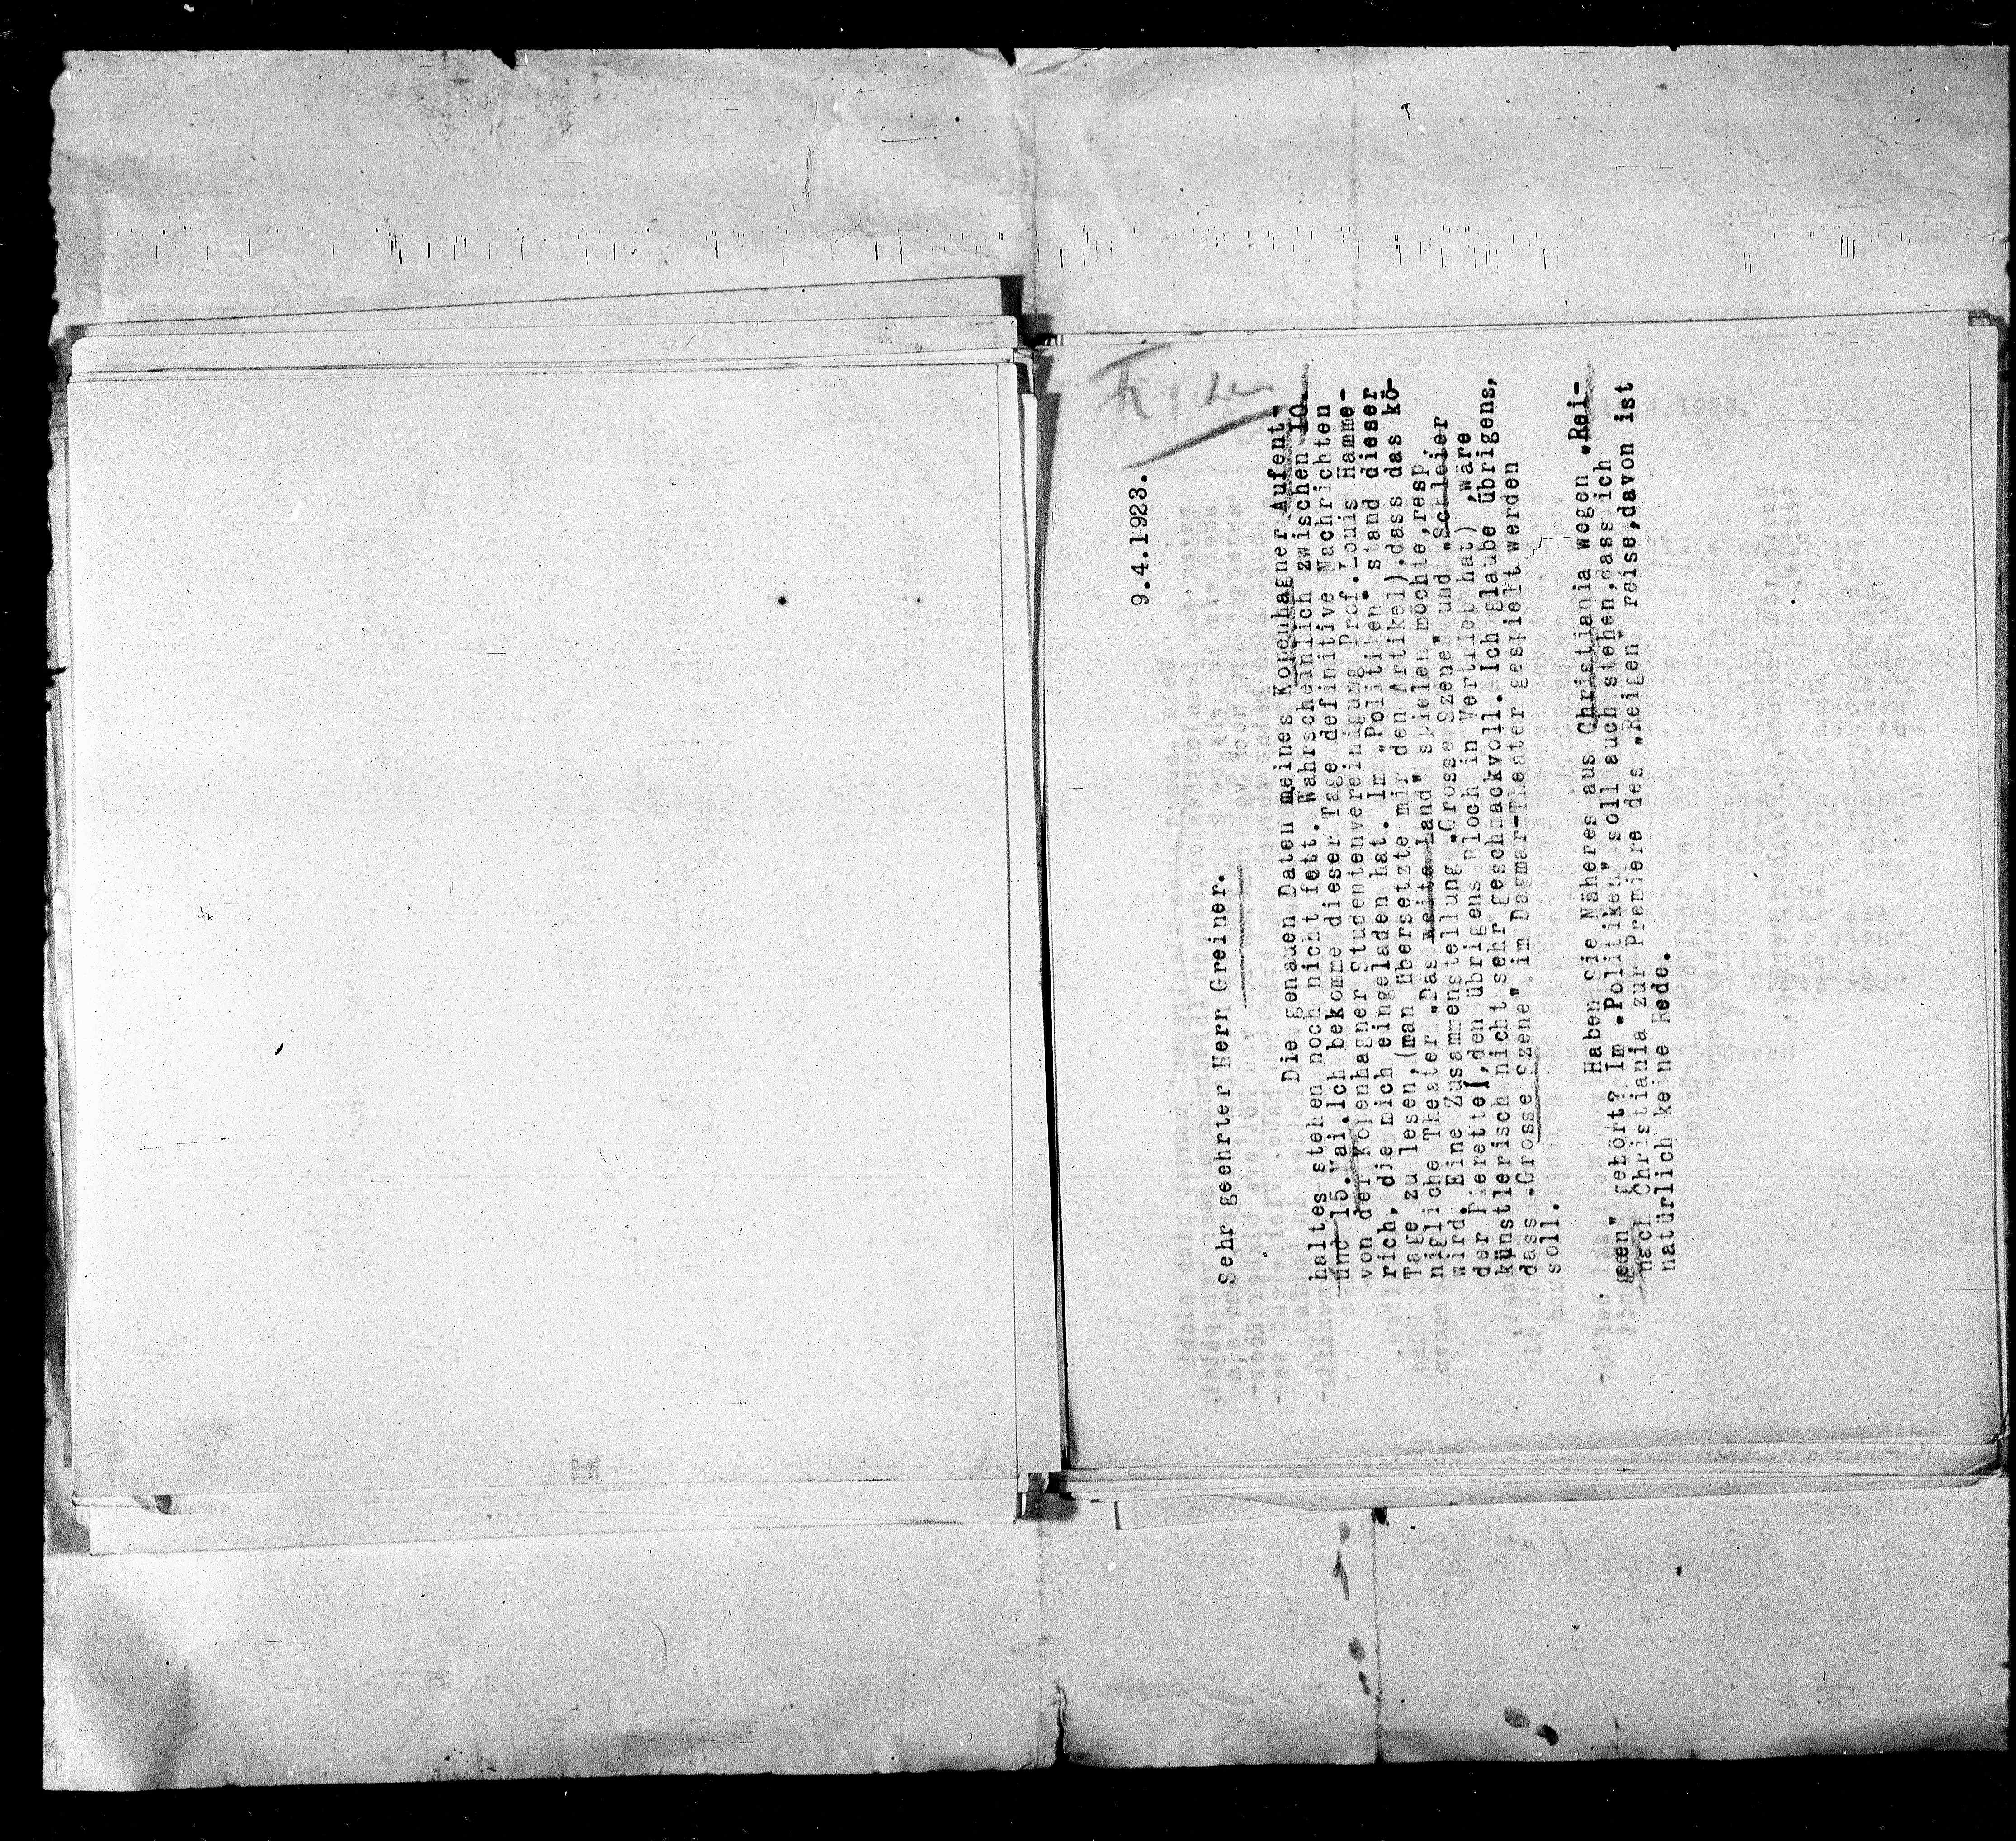 Fischer
9.4.1923.
Sehr geehrter Herr Greiner.
Die genauen Daten meines Kopenhagner Aufent-
haltes stehen noch nicht fett. Wahrscheinlich zwischen 10.
und 15.Mai.Ich bekomme dieser Tage definitive Nachrichten
von der Kopenhagner Studentenvereinigung Prof.Louis Hamme-
rich, die mich eingeladen hat. Im „Politiken" stand dieser
Tage zu lesen,(man übersetzte mir den Artikel),dass das kö-
nigliche Theater „Das weite Land" spielen möchte,resp.
wird. Eine Zusammenstellung „Grosse Szene" und „Schleier
der Pierette",den übrigens Bloch in Vertrieb hat) ,wäre
künstlerisch nicht sehr geschmackvoll. Ich glaube übrigens,
dass „Grosse Szene" im Dagmar-Theater gespielt werden
soll.
Haben Sie Näheres aus Christiania wegen „Rei-
gen" gehört? Im „Politiken" soll auch stehen,dass ich
nach Christiania zur Premiere des „Reigen" reise,davon ist
natürlich keine Rede.